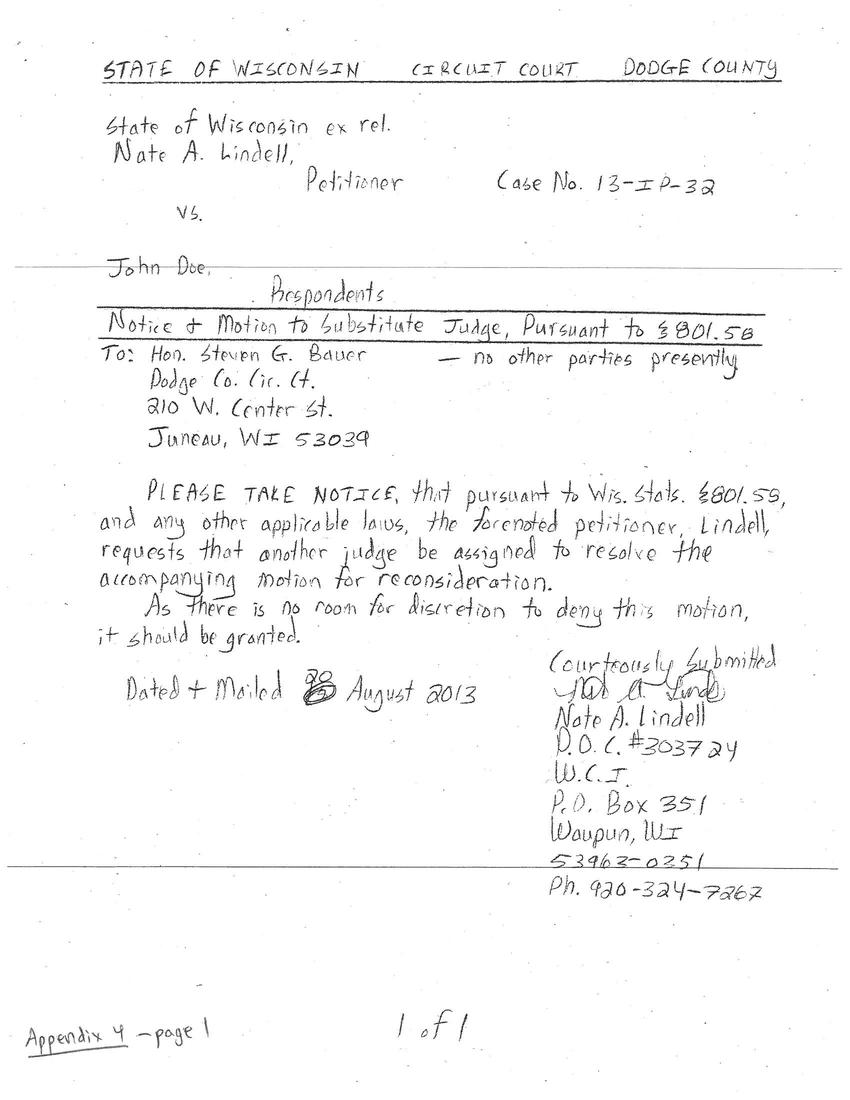 STATE OF WISCONSIN CIRCUIT COURT DODGE COUNTY
State of Wisconsin ex rel.
Nate A. Lindell,
Petitioner Case No. 13-IP-32
vs.
John Doe,
Respondents
Notice + Motion to Substitute Judge, Pursuant to §801.58
To: Hon. Steven G. Bauer — no other parties presently
Dodge Co. Cir. Ct.
210 W. Center St.
Juneau, WI 53039
PLEASE TAKE NOTICE, that pursuant to Wis. Stats. §801.58,
and any other applicable laws, the forenoted petitioner, Lindell,
requests that another judge be assigned to resolve the
accompanying motion for reconsideration.
As there is no room for discretion to deny this motion,
it should be granted.
Courteously Submitted
Dated + Mailed 20 August 2013
Nate A. Lindell
D.O.C. #303724
W.C.I.
P.O. Box 351
Waupun, WI
53963-0351
Ph. 920-324-7267
Appendix 4 - page 1
1 of 1